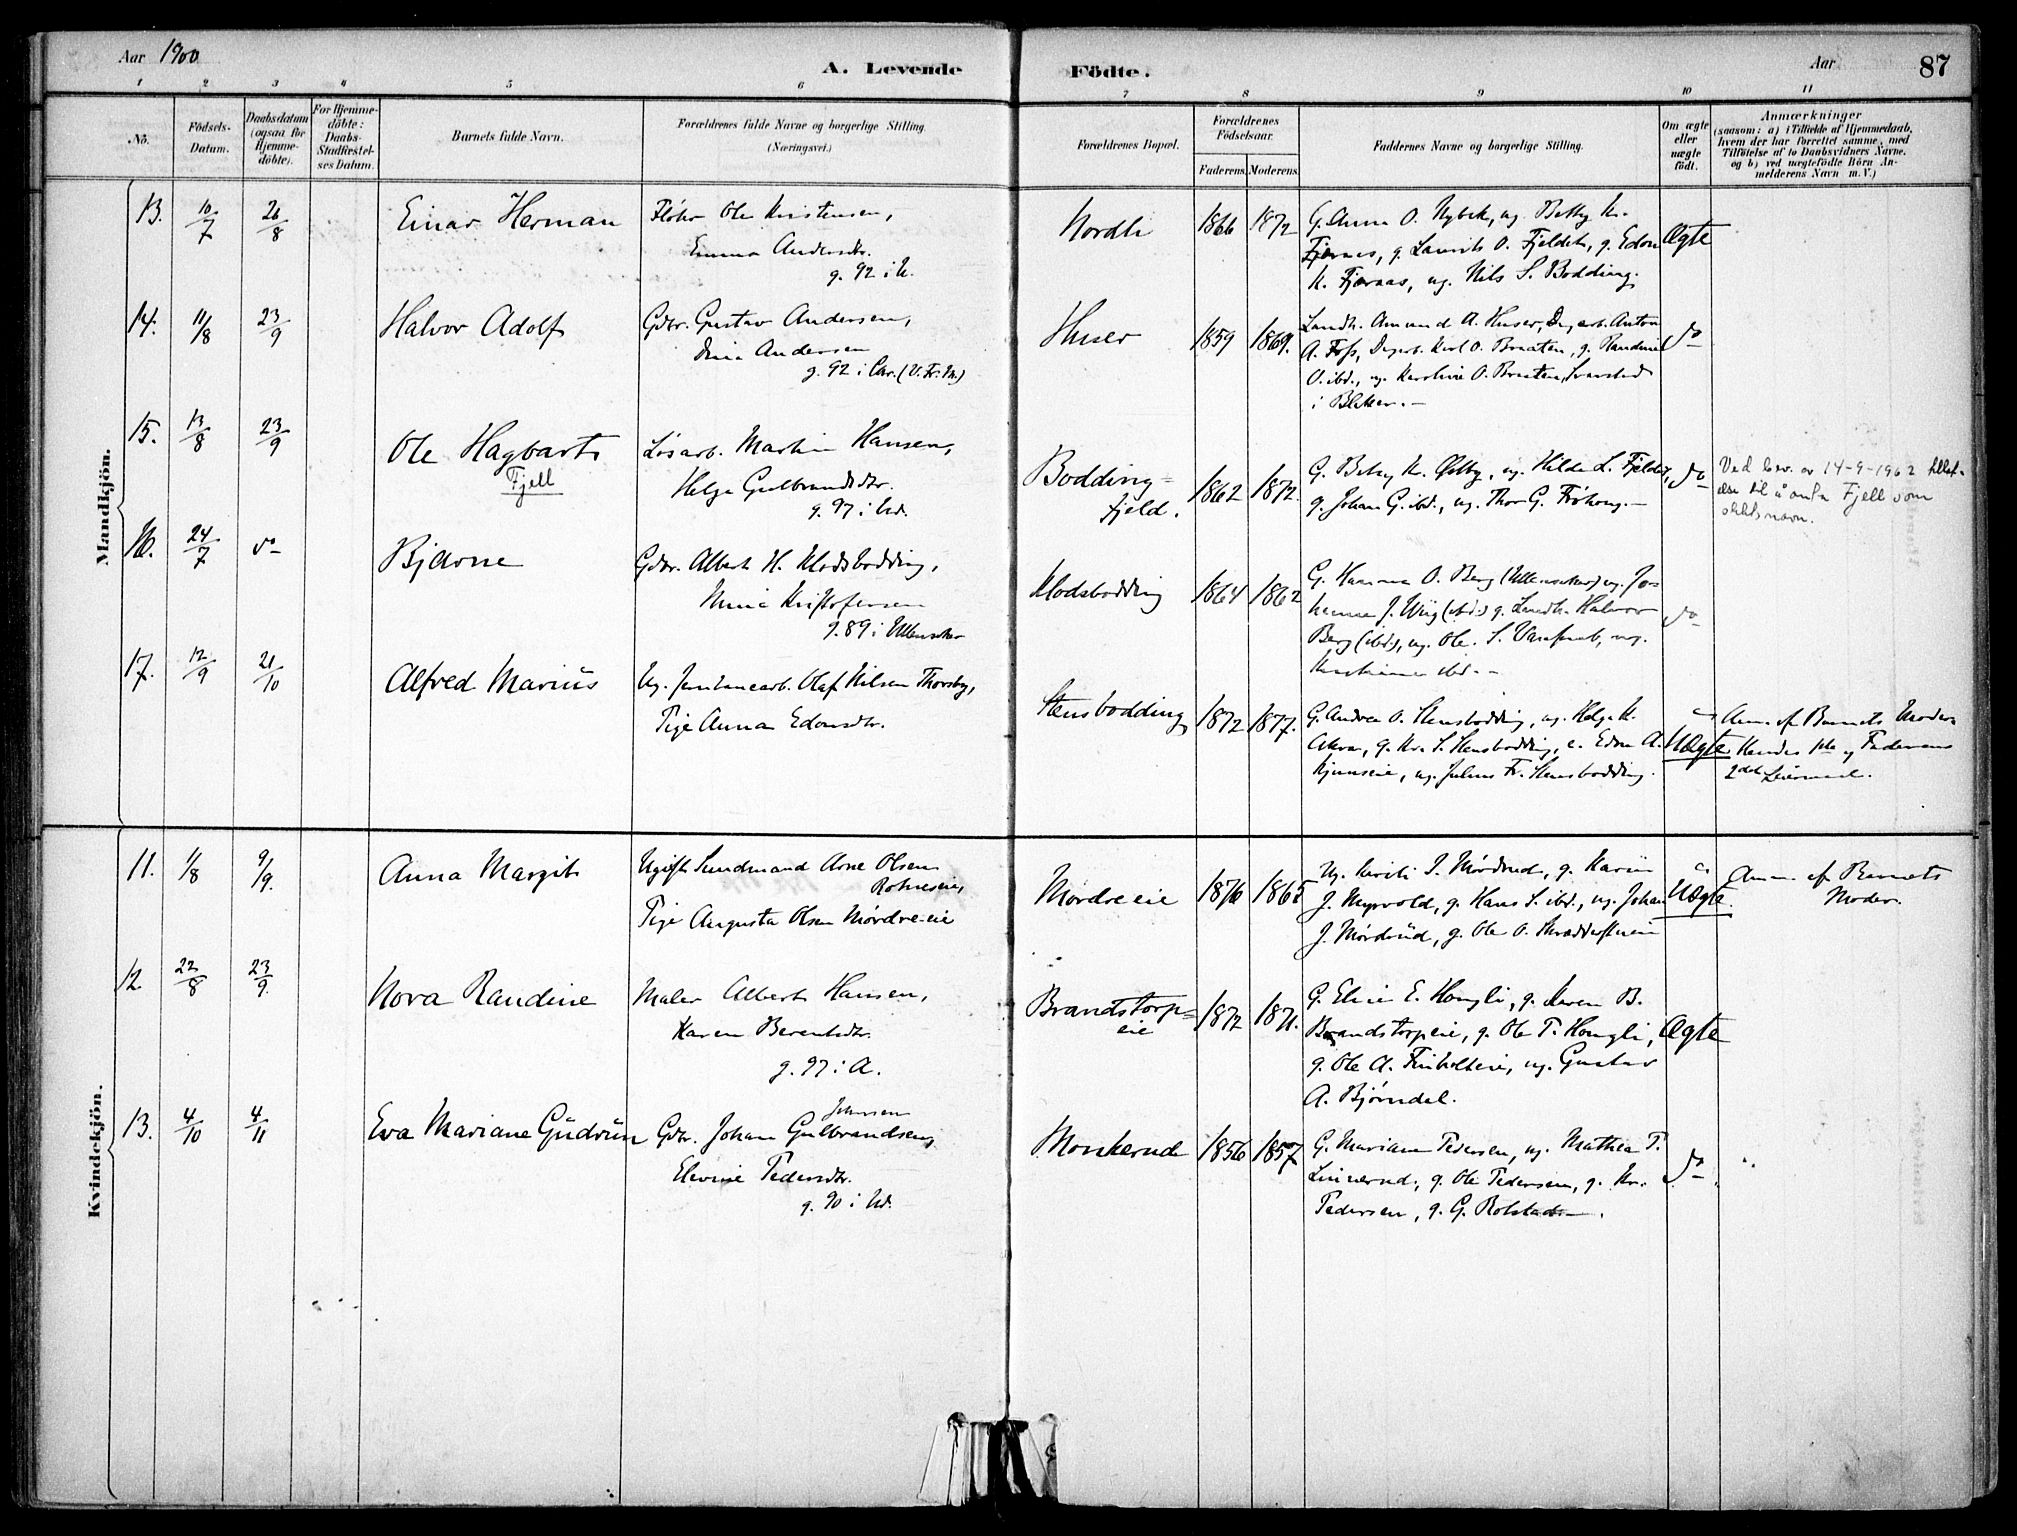 Aar 1900
A. Levende
Födte.
Aar
87
1 2 3 4 5 6 7 8 9 10 11
No.
Födsels-
Datum.
Daabsdatum
(ogsaa for
Hjemme-
döbte).
For Hjemme-
döbte:
Daabs-
Stadfæstel-
ses Datum.
Barnets fulde Navn.
Forældrenes fulde Navne og borgerlige Stilling.
(Næringsvei.)
Forældrenes Bopæl.
Forældrenes
Födselsaar.
Faderens. Moderens.
Faddernes Navne og borgerlige Stilling.
Om ægte
eller
uægte
født.
Anmærkninger
(saasom: a) i Tilfælde af Hjemmedaab,
hvem der har forrettet samme, med
Tilföielse af to Daabsvidners Navne,
og b) ved uægtefödte Börn An-
melderens Navn m. V.)
Mandkjön.
13. 10/7 26/8 Einar Herman
Ole Kristensen,
Emma Andersdtr.
g. 92 i N.
Nordli 1866 1872
G. Anna O. Nybek, ug. Betty K.
Fjernes, g. Laurits O. Fjeldet, g. Edon
K. Fjernæs, ug. Nils S. Bodding.
Ægte
14. 11/8 23/9 Halvor Adolf
Gdbr. Gustav Andersen,
Andersen
g. 92 i Chr. (V. Fr. M.)
Huser 1859 1869.
Landh. Amund A. Huser, Dagarb. Anton
A. Foss, Dagarb. Karl O. Braaten, g. Randine
O. ibd., ug. Karoline O. Braaten,
i Blaker. –
do
15. 13/8 23/9 Ole Hagbart
Fjell
Løsarb. Martin Hansen,
Helga Gulbrandsdtr.
g. 97 i Ud.
Bodding-
fjeld. 1862 1872.
G. Betzy K. Østby, ug. Hilda L. Fjeldet,
g. Johan G. ibd., ug. Thor G. Frøhaug. –
do
Ved bev. av 14-9-1962 tillat-
else til å anta Fjell som
slektsnavn.
16. 24/7 do Bjarne
Gdbr. Albert H. Klodsbodding,
Mina Kristofersen
g. 89 i Ullensaker
Klodsbodding 1864 1862
G. Hanna O. Berg (Ullensaker) ug. Jo-
hanne J. Wiig (ibd.) g. Landh. Halvor
Berg (ibd.), ug. Ole S. ug.
ibd. –
do
17. 12/9 21/10 Alfred Marius
Ug. Jernbanearb. Olaf Nilsen Thorsby,
Pige Anna Edonsdtr.
Stensbodding 1872 1877.
G. Andrea O. Stensbodding, ug. Helga K.
g. Kr. S. Stensbodding, e. Edon A.
ug. Julius Fr. Stensbodding.
Uægte
Anm. af Barnets Moder
Hendes 1ste og Faderens
2det Leiermaal.
Kvindekjön.
11. 1/8 9/9. Anna Margit
Ugift Sundmand Arne Olsen
Pige Augusta Olsen Mørdre-eie
Mørdreeie 1876 1865
Ug. J. Mørdrud, g. Karen
J. Myrvold, g. Hans S. ibd., ug. Johan
J. Mørdrud, g. Ole O.
Uægte.
Anm. af Barnets
Moder.
12. 22/8 23/9. Nora Randine
Maler Albert Hansen,
Karen Berentsdtr.
g. 97 i A.
Brandstorp-
eie 1872 1871.
G. Elise E. Haugli, g. Karen B.
Brandstorpeie, g. Ole T. Haugli,
g. Ole A. Finholteie, ug. Gustav
A. Bjørndal.
Ægte
13. 4/10 4/11 Eva Mariane Gudrun
Johnsen
Gdbr. Johan Gulbrandsen,
Elevine Pedersdtr.
g. 90 i Ud.
Monkerud 1856 1857
G. Mariane Pedersen, ug. Mathea P.
Linnerud, g. Ole Pedersen, g. Kr.
Pedersen, g. G. Rolstad.
do